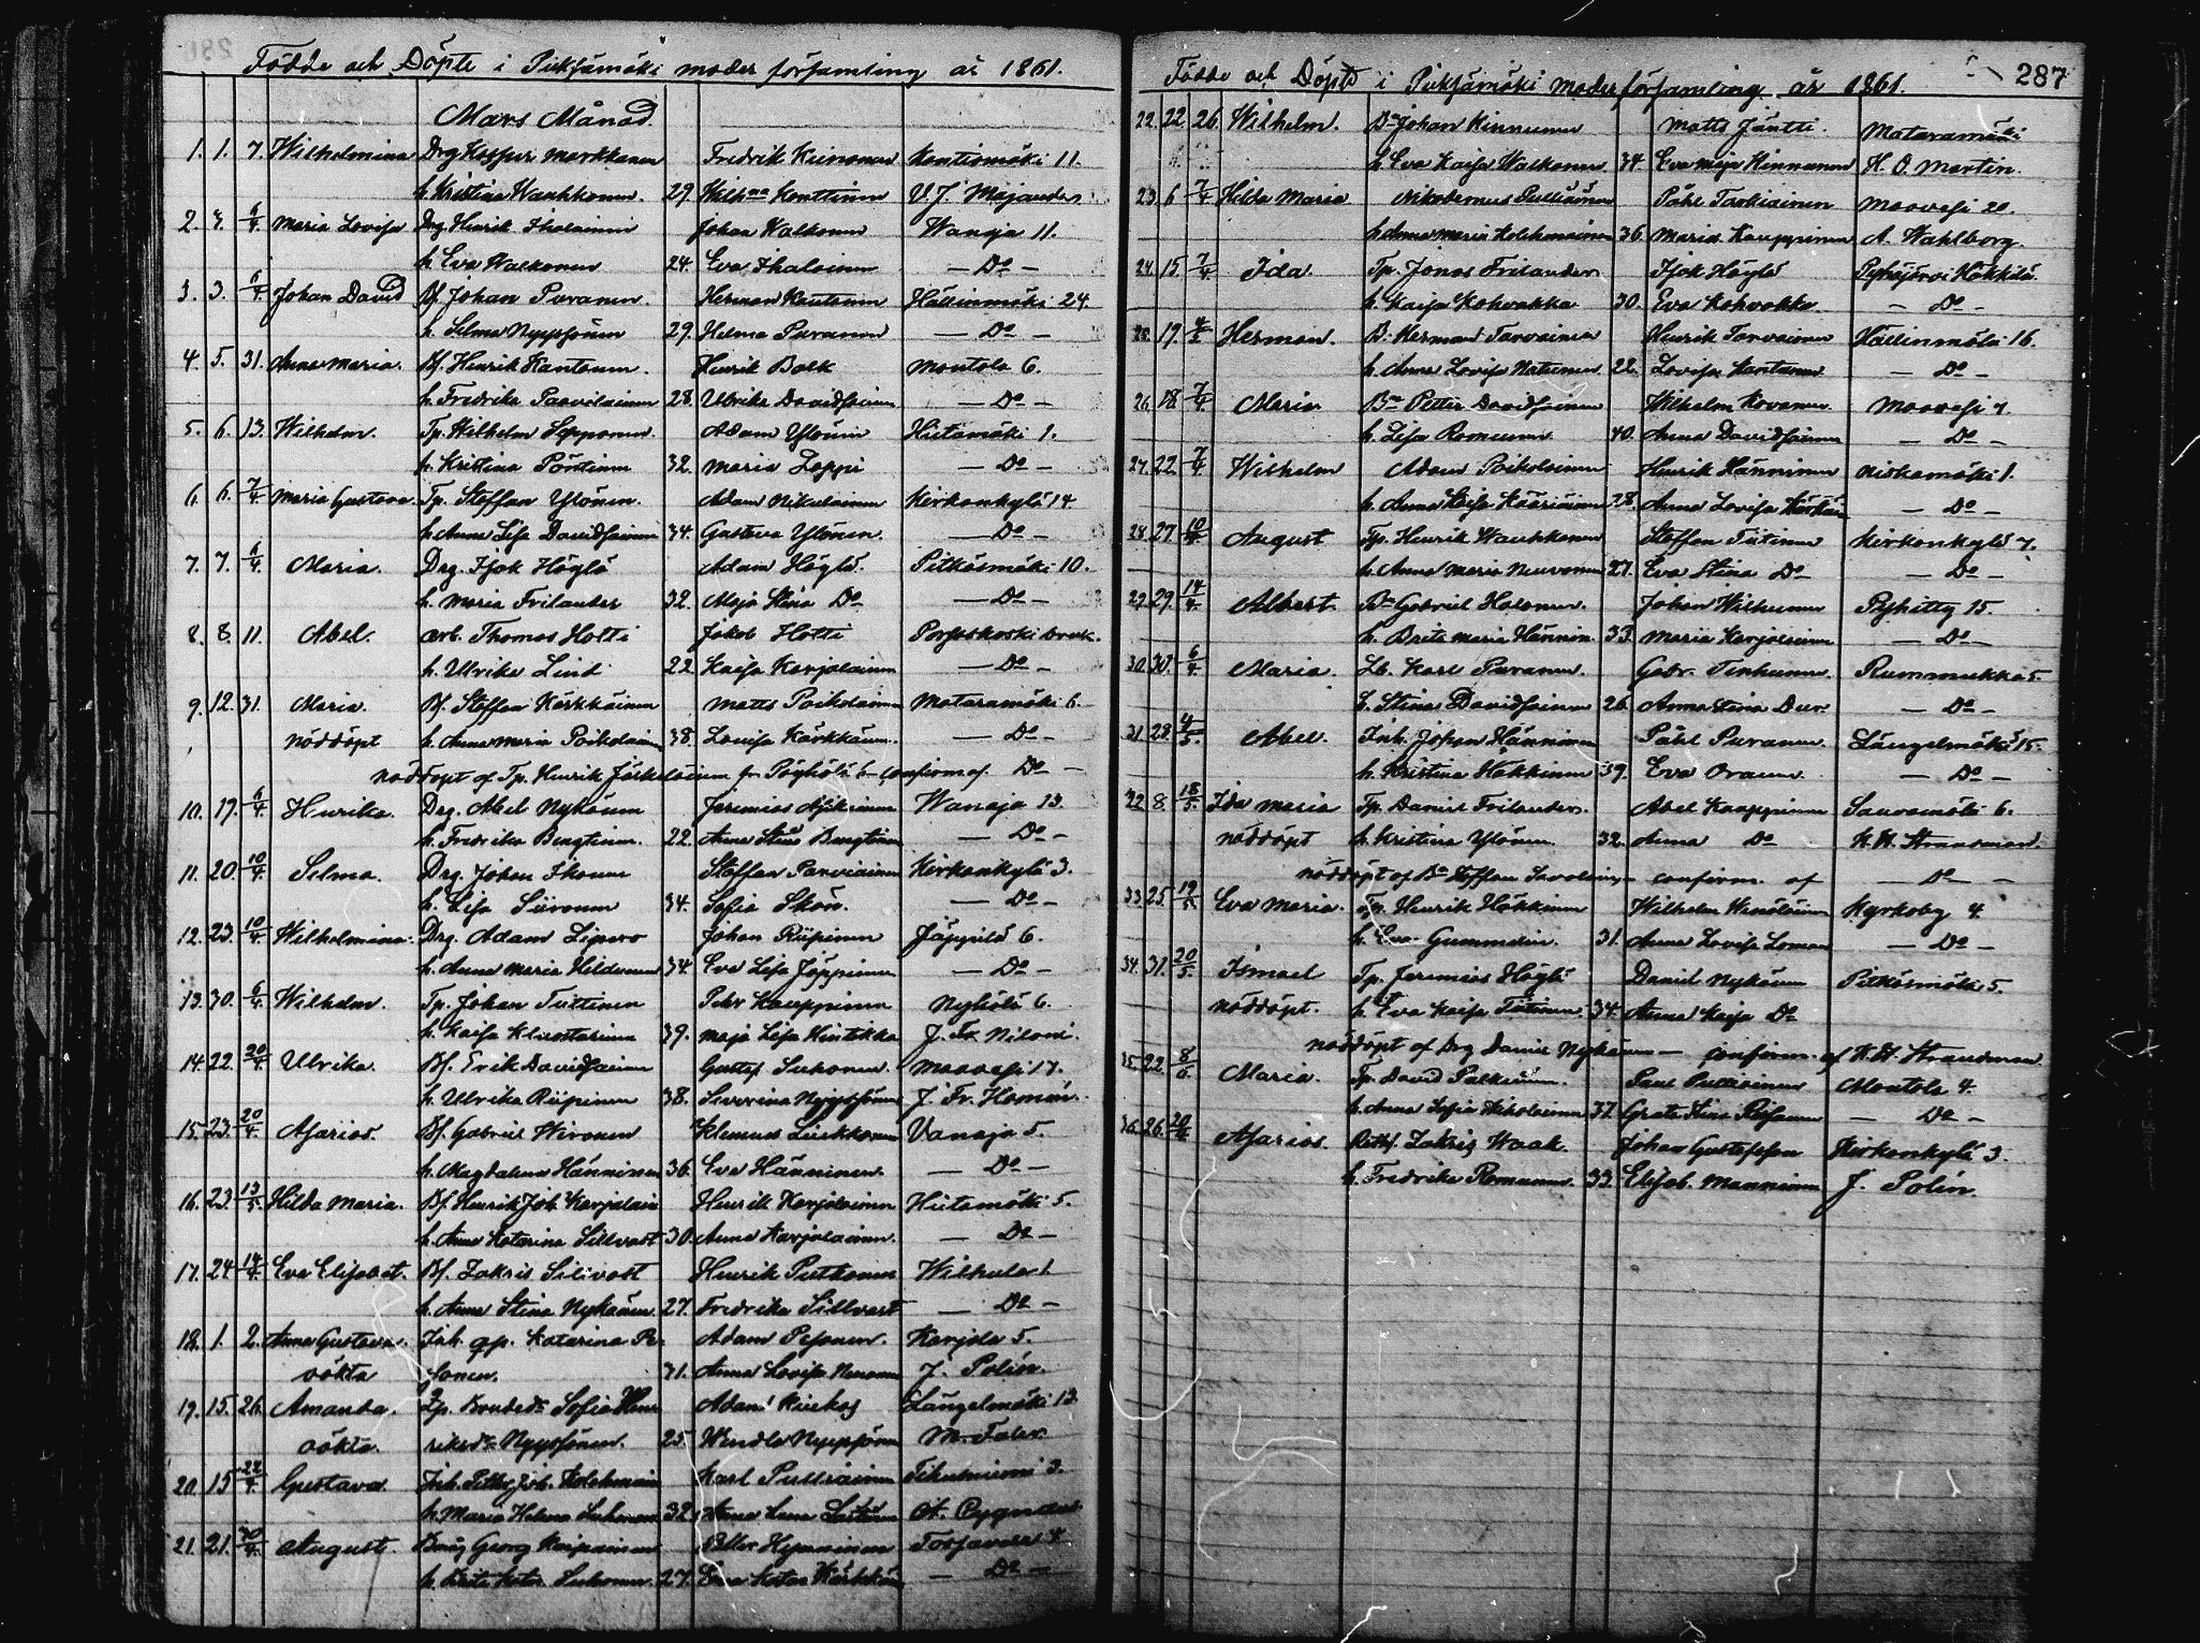 Födde och Döpte i Pieksämäki moder församling år 1861.
Mars Månad.
1. 1. 7. Wilhelmina Drg Kasper Markkanen Fredrik Kinonen Kontiomäki 11.
h. Kristina Wauhkonen. 29. Wilhna Konttinen V. J. Majander.
2. 3. 6/4. Maria Lovisa Drg. Henrik Ihalainen Johan Walkonen Wanaja 11.
h. Eva Walkonen 24. Eva Ihalainen — Do —
3. 3. 6/4. Johan David Bf. Johan Puranen. Herman Kautonen Hällinmäki 24.
h. Selma Nyyssönen 29. Helena Puranen — Do —
4. 5. 31. Anna Maria. Bf. Henrik Kantanen. Henrik Bock Montola 6.
h. Fredrika Paavilainen 28. Ulrika Davidsainen — Do —
5. 6. 13. Wilhelm. Tp. Wilhelm Sepponen. Adam Ylönen Hiitomäki 1.
h. Kristina Pöntinen 32. Maria Loppi — Do —
6. 6. 7/4. Maria Gustava. Tp. Staffan Ylönen. Adam Nikulainen Kirkonkylä 14.
h. Anna Lisa Davidsainen 34. Gustava Ylönen. — Do —
7. 7. 6/4. Maria. Drg. Isak Höglö Adam Höglö. Pitkäsmäki 10.
h. Maria Frilander 32. Maja Stina Do — Do —
8. 8. 11. Abel. Arb. Thomas Holti Jakob Hotti Porsaskoski bruk.
h. Ulrika Lind 22. Kaisa Karjalainen — Do —
9. 12. 31. Maria. Bf. Staffan Kärkkäinen Matts Poikolainen Mataramäki 6.
nöddöpt h. Anna Maria Poikolainen 38. Lovisa Kärkkäinen. — Do —
nöddöpt af Tp. Henrik Jäskeläinen fr. Pöyhölä 6 — confirm af. Do —
10. 17. 6/4. Henrika. Drg. Abel Nykänen Jeremias Asikainen Wanaja 13.
h. Fredrika Bengtinen. 22. Anna Stina Bengtinen — Do —
11. 20. 10/4. Selma. Drg. Johan Ikonen Staffan Parviainen Kirkonkylä 3.
h. Lisa Siironen 34. Sofia Skön. — Do —
12. 23. 10/4. Wilhelmina. Drg. Adam Lipero Johan Riipinen Jäppilä 6.
h. Anna Maria Hildunen 34. Eva Lisa Jäppinen — Do —
13. 30. 6/4. Wilhelm. Tp. Johan Tuttinen Pehr Kauppinen Nyhölä 6.
h. Kaisa 39. Maja Lisa Hintikka J. Fr.
14. 22. 20/4. Ulrika. Bf. Erik Davidsainen Gustaf Suhonen. Maavesi 17.
h. Ulrika Riipinen 38. Severina Nyyssönen J. Fr. Homén.
15. 23. 20/4. Asarias. Bf. Gabriel Wironen Klemens Liukkonen Vanaja 5.
h. Magdalena Hänninen 36. Eva Hänninen. — Do —
16. 23. 13/5. Hilda Maria. Bf. Henrik Joh. Karjalain Henrik Karjalainen Hiitomäki 5.
h. Anna Katarina Sillvast 30. Anna Karjalainen. — Do —
17. 24. 14/4. Eva Elisabet. Bf. Zakris Silivast Henrik Putkonen Wilhula 1.
h. Anna Stina Nykänen 27. Fredrika Sillvast — Do —
18. 1. 2. Anna Gustava. Inh. qp. Katarina Pe Adam Pesonen. Karjola 5.
oäkta sonen. 31. Anna Lovisa Neuvonen J. Polén.
19. 15. 26. Amanda. Qp. Bonded. Sofia Hen Adam Kirkas Längelmäki 13.
oäkta. riksdr. Nyyssönen. 25. Wendla Nyyssönen M. Faler.
20. 15. 22/4. Gustava Inh. Petter Joh. Kolehmain Karl Pulliainen Tihusniemi 3.
h. Maria Helena Suhonen 32. Anna Lena
21. 21. 20/4. August. Bong Georg Kaipainen Petter Hyvärinen
h. Brita Kator Suhonen. 27. Kator Kärkkäin — Do —
287
Födde och Döpte i Pieksämäki moderförsamling år 1861.
22. 22. 26. Wilhelm. Bn Johan Kinnunen Matts Jäntti. Mataramäki
h. Eva Kaisa Walkonen 34. Eva Maja Kinnunen H. O. Martin.
23. 6. 7/4. Hilda Maria Nikodemus Pulliainen Påhl Taskinen Maavesi 20.
h. Anna Maria Kolehmainen 36. Maria Kauppinen A. Wahlborg.
24. 15. 7/4. Ida. Tp. Jonas Frilander. Isak Höglö Pyhäjärvi Häkkilä.
h. Kaisa Kohvakka 30. Eva Kohvakka. — Do —
25. 19. 4/5. Herman. B. Herman Tarvainen Henrik Tarvainen Hällinmäki 16.
h. Anna Lovisa Natunen 22. Lovisa Kantanen — Do —
26. 18. 7/4. Maria Bn Petter Davidsainen Wilhelm Kovanen Maavesi 7.
h. Lisa Romunen. 40. Anna Davidsainen — Do —
27. 22. 7/4. Wilhelm Adam Poikolainen Henrik Hänninen Niskamäki 1.
h. Anna Kaisa Kääriäinen 28. Anna Lovisa — Do —
28. 27. 10/4. August Tp. Henrik Wauhkonen Staffan Tiitinen Kirkonkylä 7.
h. Anna Maria Neuvonen 27. Eva Stina Do — Do —
29. 29. 14/4. Albert. Bn Gabriel Halonen. Johan Wilhunen Pyhitty 15.
h. Brita Maria Hännin. 33. Maria Karjalainen — Do —
30. 30. 6/4. Maria. Lb. Karl Puranen. Gabr. Tenhunen. Rummukka 5.
h. Stina Davidsainen 26. Anna Stina — Do —
31. 28. 4/5. Abel. Inh. Johan Hänninen Påhl Puranen. Längelmäki 15.
h. Kristina Häkkinen 39. Eva Oranen. — Do —
32. 8. 18/5. Ida Maria Tp. Daniel Frilander. Abel Kauppinen Sauvamäki 6.
nöddöpt h. Kristina Ylönen. 32. Anna Do K. H. Strandman.
nöddöpt af Bn Staffan Savolainen — confirm. af — Do —
33. 25. 19/5. Eva Maria. Tp. Henrik Häkkinen Wilhelm Wenäläinen Kyrkoby 4.
h. Eva Gummelin. 31. Anna Lovisa Loman — Do —
34. 31. 20/5. Ismael Tp. Jeremias Höglö Daniel Nykänen Pitkäsmäki 5.
nöddöpt. h. Eva Kaisa Tiitinen 34. Anna Kaisa Do
nöddöpt af Drg Daniel Nykänen — confirm. af K. H. Strandman.
35. 22. 8/6. Maria. Tp. David Palkinen. Paul Pulliainen Montola 4.
h. Anna Sofia Nikolainen 37. Greta Stina — Do —
36. 26. 20/6. Asarias. Rättf. Zakris Waak. Johan Gustafsson Kirkonkylä 3.
h. Fredrika Romunen 33. Elisab. Manninen J. Polén.